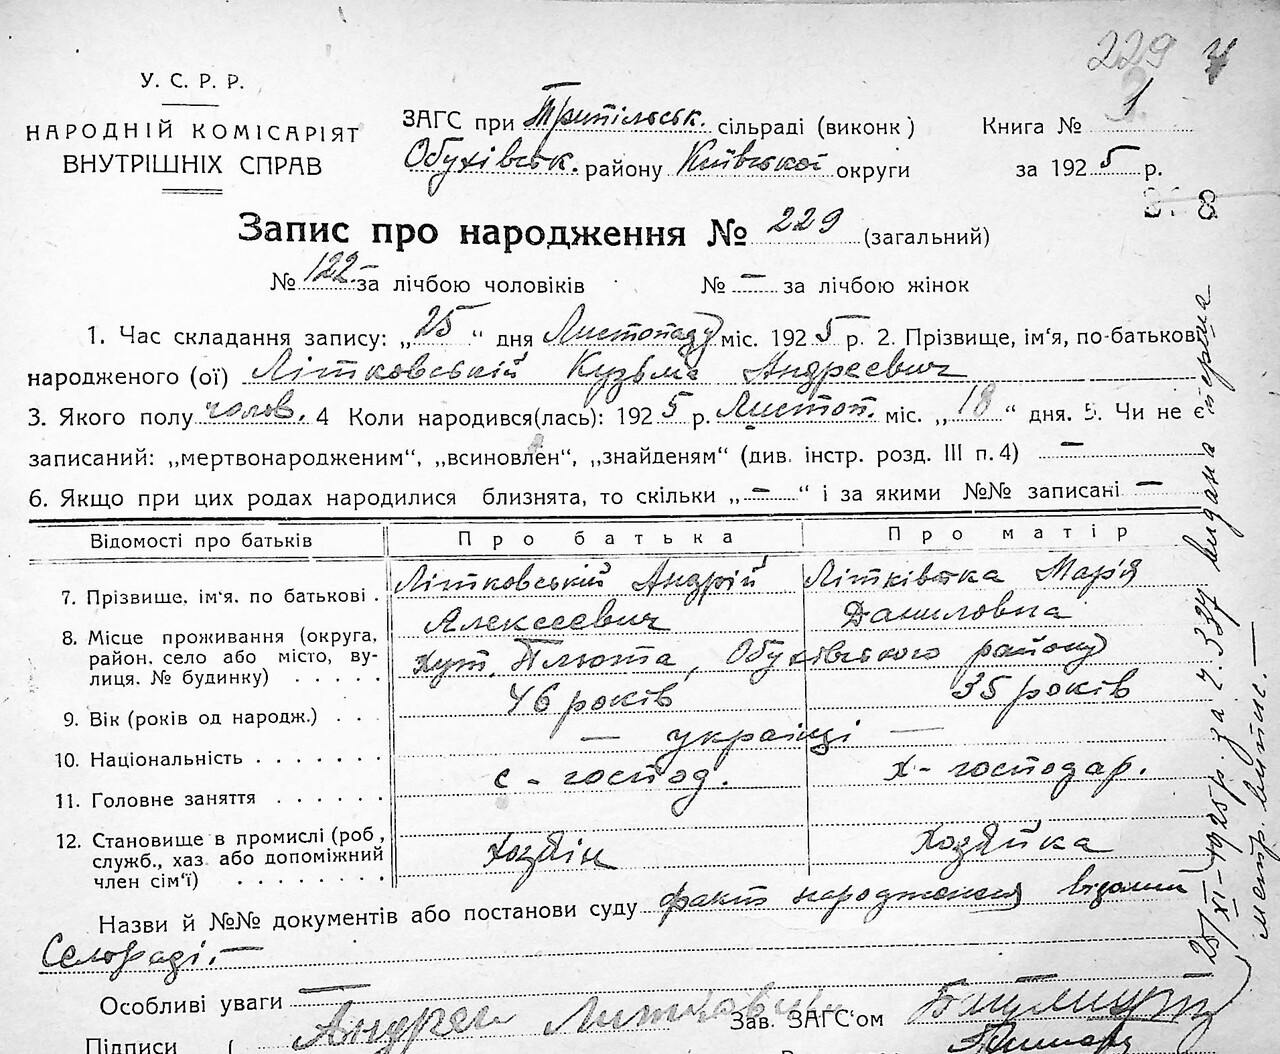 229 4
У. С. Р. Р.
НАРОДНІЙ КОМІСАРІЯТ
ВНУТРІШНІХ СПРАВ
ЗАГС при Трипільськ. сільраді (виконк )
Обухівськ. району Київської округи
Книга № 1
за 1925 р.
Запис про народження № 229 (загальний)
№ 122 за лічбою чоловіків № — за лічбою жінок
1. Час складання запису: „25“ дня Листопаду міс. 1925 р. 2. Прізвище, ім‘я, по-батькові
народженого (ої) Літковській Кузьма Андреевич
3. Якого полу чолов. 4 Коли народився(лась): 1925 р. Листоп. міс. „18“ дня. 5. Чи не є
записаний: „мертвонародженим“, „всиновлен“, „знайденям“ (див. інстр. розд. III п. 4) —
6. Якщо при цих родах народилися близнята, то скільки „—“ і за якими №№ записані —
Відомості про батьків Про батька Про матір
7. Прізвище, ім‘я, по батькові . Літковській Андрій Алексеевич Літківська Марія Даниловна
8. Місце проживання (округа, район, село або місто, вулиця, № будинку) . . . . . хут. Плюта, Обухівського району
9. Вік (років од народж.) . . . 46 років 35 років
10. Національність . . . . . . . — українці —
11. Головне заняття . . . . . . с-господ. х-господар.
12. Становище в промислі (роб., служб., хаз. або допоміжний член сім‘ї) . . . . . . . . хозяін Хозяйка
Назви й №№ документів або постанови суду факт народження відомий
Сельраді.—
Особливі уваги —
Підписи ( Андрей Литковский Зав. ЗАГС‘ом
25/XI-1925 р. за ч. 337 видана перша
метр. випис.—